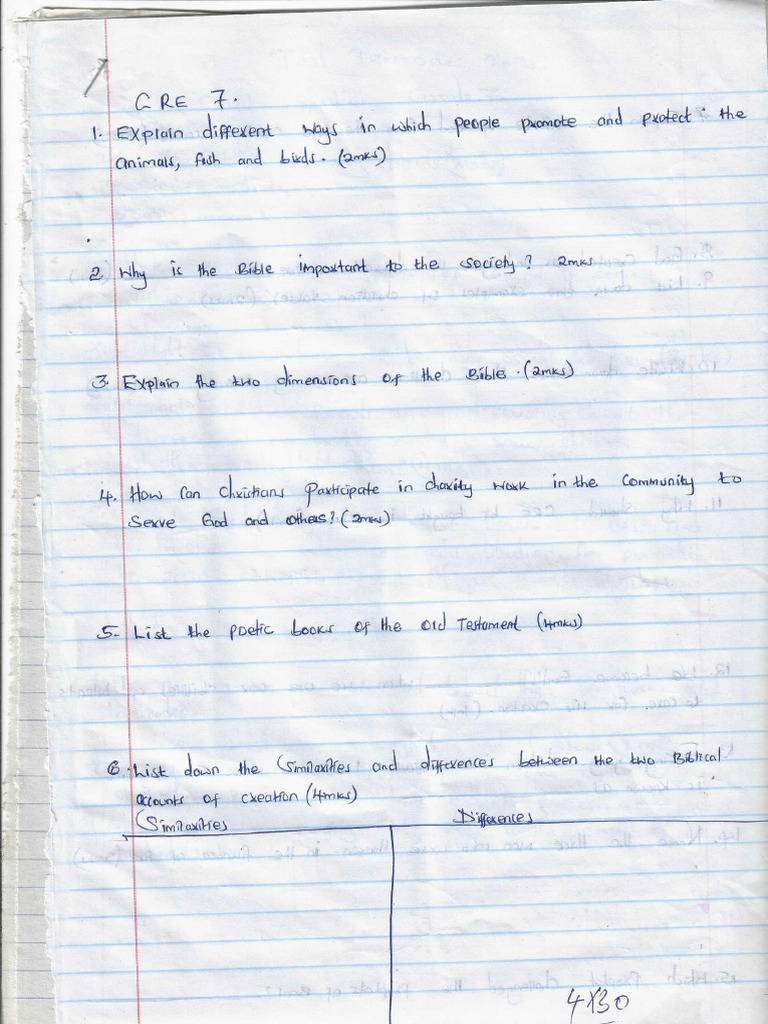 CRE 7.
1. Explain different ways in which people promote and protect the
animals, fish and birds. (2mks)
2. Why is the Bible important to the society? 2mks
3. Explain the two dimensions of the Bible. (2mks)
4. How can Christians participate in charity work in the community to
serve God and others? (2mks)
5. List the poetic books of the Old Testament (4mks)
6. List down the similarities and differences between the two Biblical
accounts of creation (4mks)
Similarities Differences
4x30